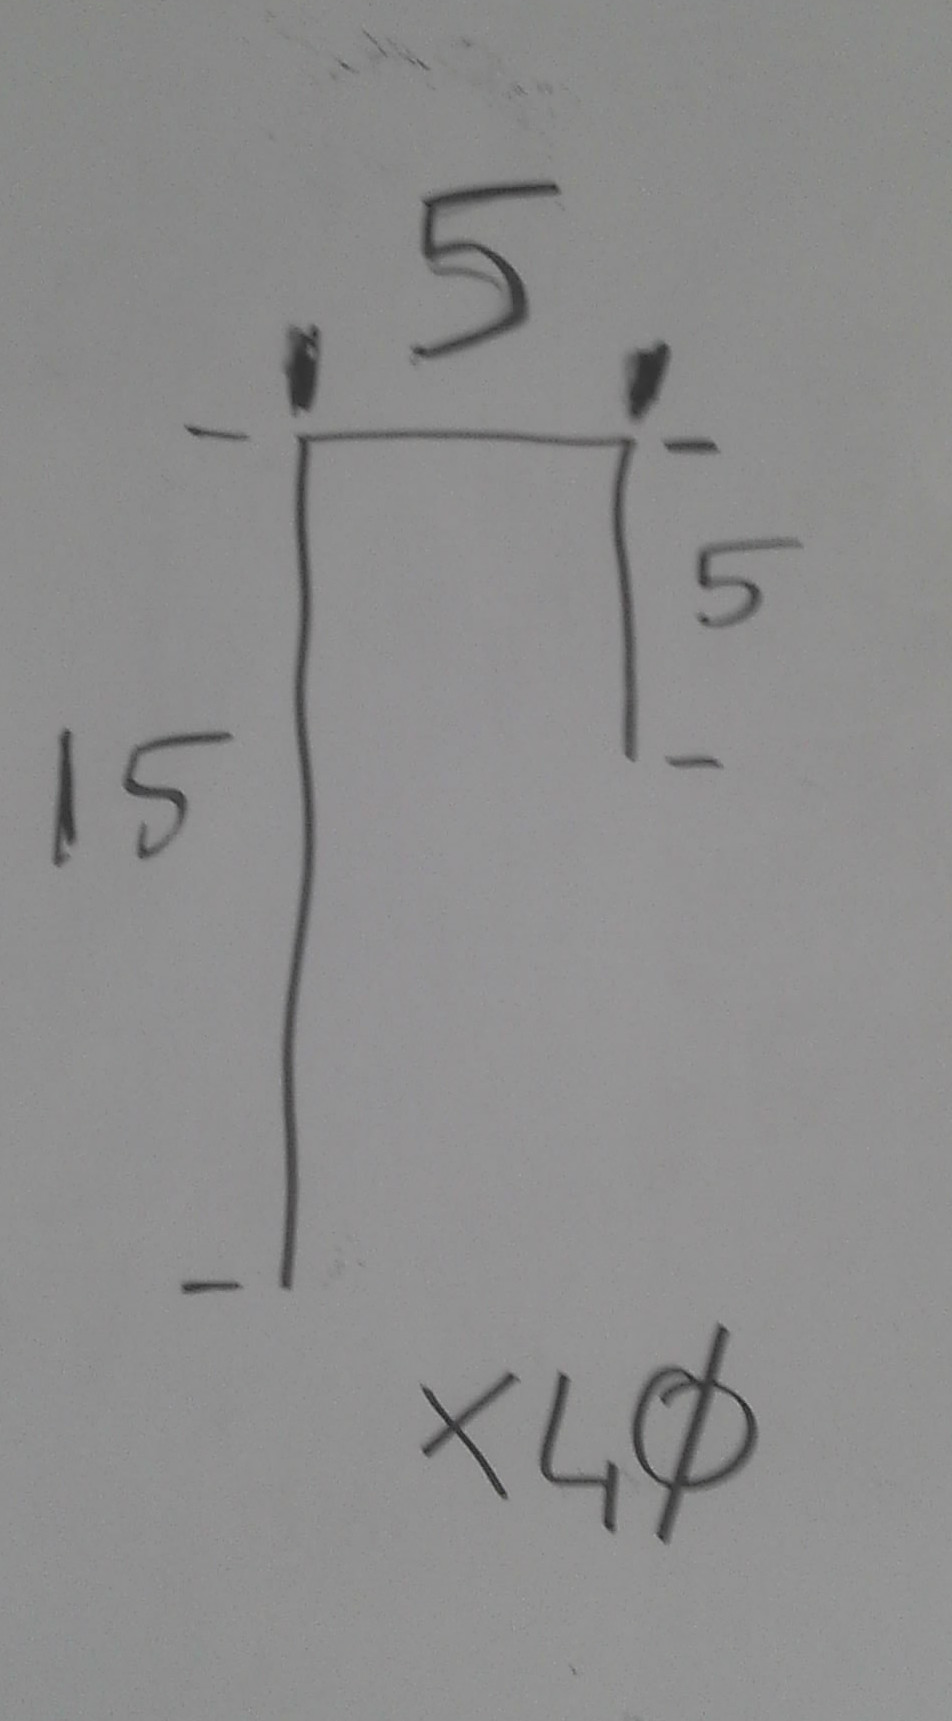 5
5
15
x4Ø